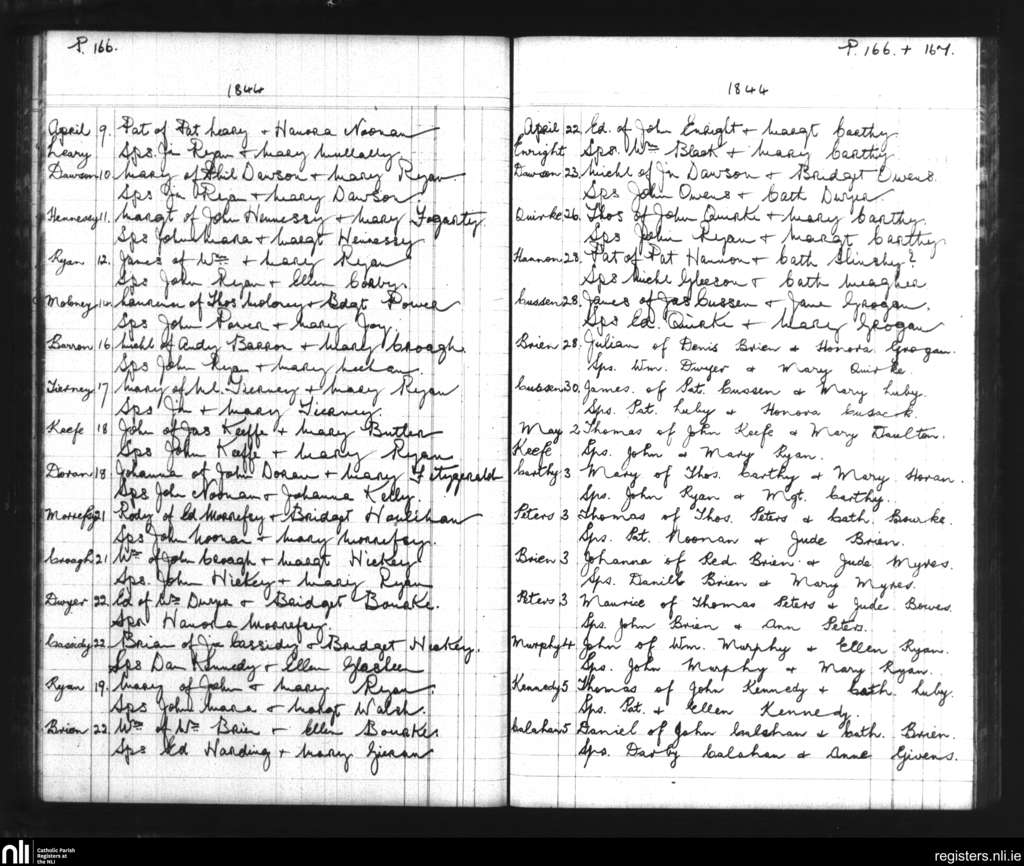 P. 166.
1844
April 9. Pat of Pat Leary + Hanora Noonan
Leary Sps. Jn Ryan + Mary Mullally
Dawson 10. Mary of Phil Dawson + Mary Ryan
Sps Jn Ryan + Mary Dawson.
Hennessy 11. Margt of John Hennessy + Mary Fogarty
Sps John Mara + Margt Henessy
Ryan 12. James of Wm + Mary Ryan
Sps John Ryan + Ellen Corby.
Moloney 14. of Thos Moloney + Bdgt Power
Sps John Power + Mary Joy.
Barron 16 Michl of Andy Barron + Mary Croagh.
Sps John Ryan + Mary
Tierney 17 Mary of Ml. Tierney + Mary Ryan
Sps Jn + Mary Tierney.
Keefe 18 John of Jas Keeffe + Mary Butler
Sps John Keeffe + Mary Ryan
Doran 18 Johanna of John Doran + Mary Fitzgerald
Sps John Noonan + Johanna Kelly.
21 Rody of Ed Morrefsy + Bridget Houlihan
Sps John Noonan + Mary Morrefsy.
Croagh 21 Wm of John Croagh + Margt Hickey
Sps. John Hickey + Mary Ryan
Dwyer 22 Ed of Wm Dwyer + Bridget Bourke.
Spr Hanora Morrefsy.
Cassidy 22 Brian of Jn Cassidy + Bridget Hickey.
Sps Dan Kennedy + Ellen Glasheen
Ryan 19. Mary of John + Mary Ryan
Sps John Mara + Margt Walsh.
Brien 22 Wm of Wm Brien + Ellen Bourke
Sps Ed Harding + Mary Gieran
P. 166. + 167.
1844
April 22. Ed. of John Enright + Margt Carthy
Enright Sps. Wm Black + Mary Carthy
Dawson 23. Michl of Jn Dawson + Bridget Owens.
Sps John Owens + Cath Dwyer.
Quirke 26. Thos of John Quirke + Mary Carthy.
Sps John Ryan + Margt Carthy
Hannon 28. Pat of Pat Hannon + Cath Slinshy?
Sps Michl Gleeson + Cath Meagher
Cussen 28. James of Jas Cussen + Jane Grogan.
Sps Ed. Quirke + Mary Grogan
Brien 28. Julian of Denis Brien + Honora Grogan.
Sps. Wm. Dwyer + Mary Quirke.
Cussen 30. James. of Pat. Cussen + Mary Luby.
Sps. Pat. Luby + Honora Cusack.
May 2 Thomas of John Keefe + Mary Daulton.
Keefe Sps. John + Mary Ryan.
Carthy 3 Mary of Thos. Carthy + Mary Horan.
Sps. John Ryan + Mgt. Carthy.
Peters 3 Thomas of Thos. Peters + Cath. Bourke.
Sps. Pat. Noonan + Jude Brien.
Brien 3 Johanna of Red. Brien. + Jude Myres.
Sps. Daniel Brien + Mary Myres.
Peters 3 Maurice of Thomas Peters + Jude. Bowes.
Sps. John Brien + Ann Peters.
Murphy 4 John of Wm. Murphy + Ellen Ryan.
Sps. John Murphy + Mary Ryan.
Kennedy 5 Thomas of John Kennedy + Cath. Luby.
Sps. Pat. + Ellen Kennedy.
Calahan 5 Daniel of John Calahan + Cath. Brien.
Sps. Darby Calahan + Anne Givens.
nli Catholic Parish
Registers at
the NLI
registers.nli.ie